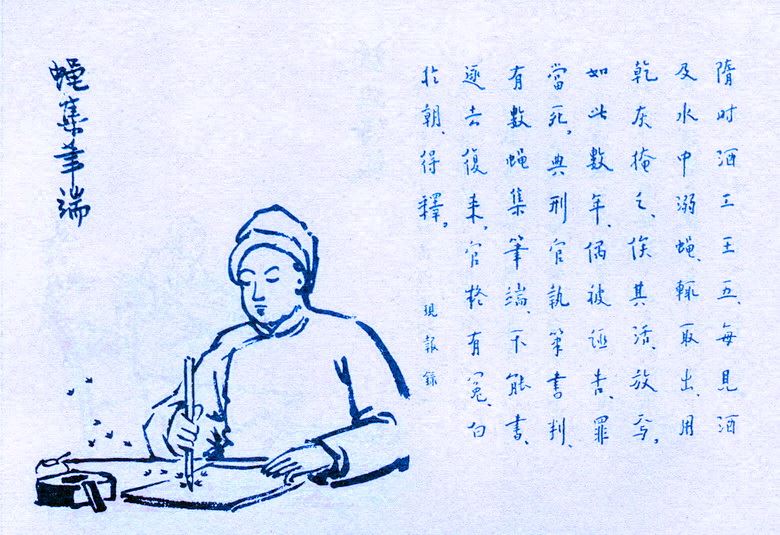 隋时酒工王五、每見酒
及水中溺蝇、輒取出、用
乾灰掩之、俟其活、放焉。
如此數年、偶被誣告、罪
當死。典刑官執筆書判、
有數蝇集筆端、不能書、
逐去復来。官有冤、白
於朝、得釋。
現報錄
蝇集筆端